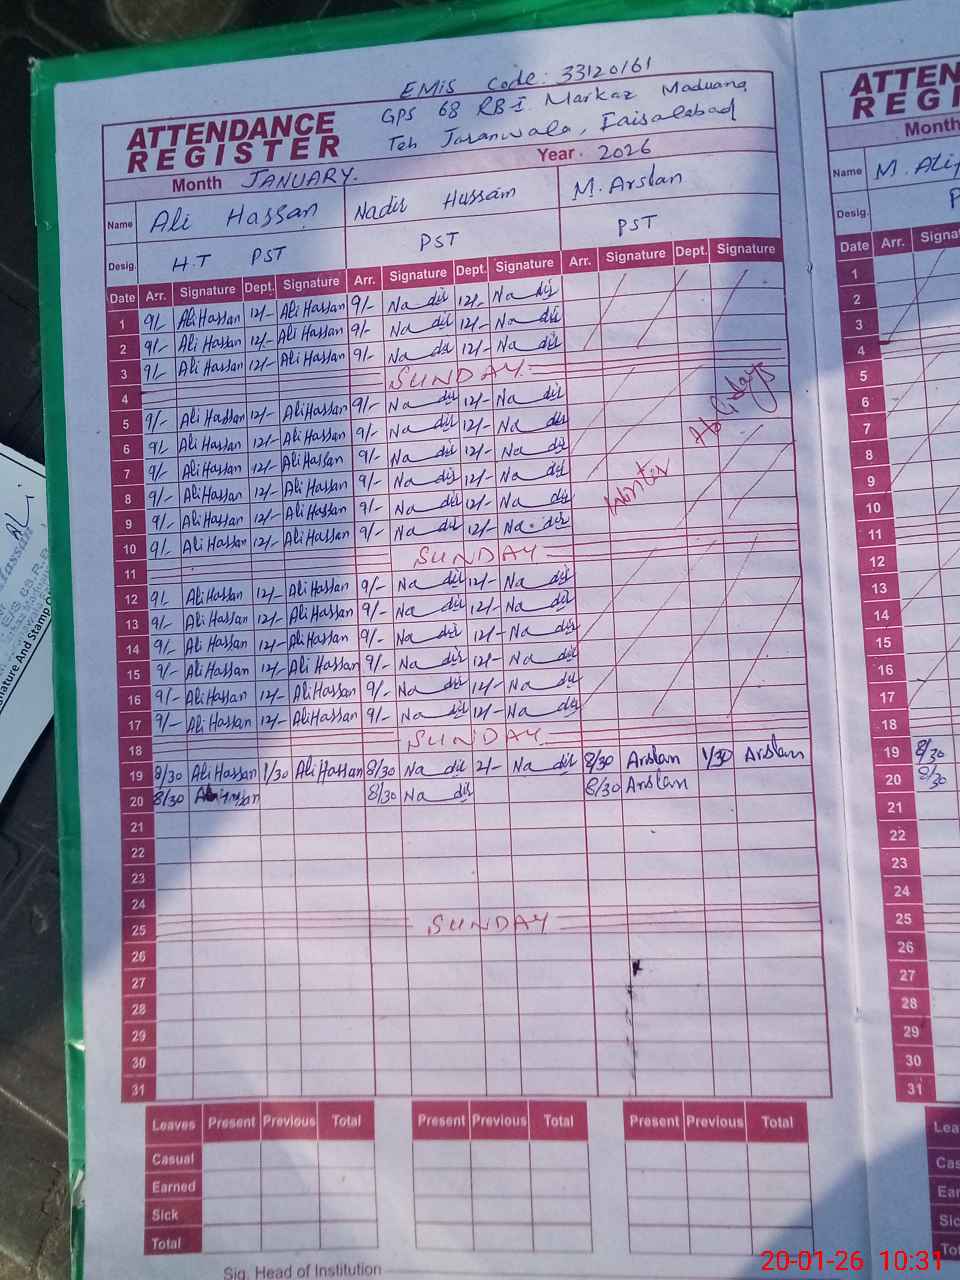 EMIS Code: 33120161
GPS 68 RB-I Markaz Maduana
Teh Jaranwala, Faisalabad
ATTENDANCE REGISTER
Month JANUARY. Year . 2026
Name Ali Hassan Nadir Hussain M. Arslan
Desig. H.T PST PST PST
Date Arr. Signature Dept. Signature Arr. Signature Dept. Signature Arr. Signature Dept. Signature
1 9/- Ali Hassan 12/- Ali Hassan 9/- Nadir 12/- Nadir
2 9/- Ali Hassan 12/- Ali Hassan 9/- Nadir 12/- Nadir
3 9/- Ali Hassan 12/- Ali Hassan 9/- Nadir 12/- Nadir
4 SUNDAY
5 9/- Ali Hassan 12/- Ali Hassan 9/- Nadir 12/- Nadir
6 9/- Ali Hassan 12/- Ali Hassan 9/- Nadir 12/- Nadir
7 9/- Ali Hassan 12/- Ali Hassan 9/- Nadir 12/- Nadir
8 9/- Ali Hassan 12/- Ali Hassan 9/- Nadir 12/- Nadir
9 9/- Ali Hassan 12/- Ali Hassan 9/- Nadir 12/- Nadir
10 9/- Ali Hassan 12/- Ali Hassan 9/- Nadir 12/- Nadir
Winter Holidays
11 SUNDAY
12 9/- Ali Hassan 12/- Ali Hassan 9/- Nadir 12/- Nadir
13 9/- Ali Hassan 12/- Ali Hassan 9/- Nadir 12/- Nadir
14 9/- Ali Hassan 12/- Ali Hassan 9/- Nadir 12/- Nadir
15 9/- Ali Hassan 12/- Ali Hassan 9/- Nadir 12/- Nadir
16 9/- Ali Hassan 12/- Ali Hassan 9/- Nadir 12/- Nadir
17 9/- Ali Hassan 12/- Ali Hassan 9/- Nadir 12/- Nadir
18 SUNDAY
19 8/30 Ali Hassan 1/30 Ali Hassan 8/30 Nadir 2/- Nadir 8/30 Arslan 1/30 Arslan
20 8/30 8/30 Nadir 8/30 Arslan
21
22
23
24
25 SUNDAY
26
27
28
29
30
31
Leaves Present Previous Total Present Previous Total Present Previous Total
Casual
Earned
Sick
Total
Sig. Head of Institution
ATTEN
REGI
Month
Name M. Ali
Desig. P
Date Arr. Signa
1
2
3
4
5
6
7
8
9
10
11
12
13
14
15
16
17
18
19 8/30
20 8/30
21
22
23
24
25
26
27
28
29
30
31
Lea
Cas
Ear
Sic
Tot
nature And Stamp O
20-01-26 10:31